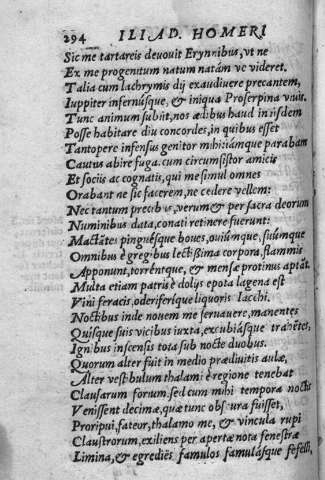 294 ILIAD. HOMERI
Sic me tartareis deuouit Erynnibus, vt ne
Ex me progenitum natum natám ve videret.
Talia cum lachrymis dij exaudiuere precantem,
Iuppiter infernúsque, & iniqua Proserpina viuit.
Tunc animum subijt, nos ædibus haud in ijsdem
Posse habitare diu concordes, in quibus esset
Tantopere infensus genitor mihi: iámque parabam
Cautus abire fuga. cum circumsistor amicis
Et sociis ac cognatis, qui me simul omnes
Orabant ne sic facerem, ne cedere vellem:
Nec tantum precibus, verum & per sacra deorum
Numinibus data, conati retinere fuerunt:
Mactátes pinguésque boues, ouiúmque, suúmque
Omnibus è gregibus lectissima corpora, flammis
Apponunt, torréntque, & mensæ protinus aptát.
Multa etiam patris è dolys epota lagena est
Vini feracis, oderiferíque liquoris Iacchi.
Noctibus inde nouem me seruauere, manentes
Quisque suis vicibus iuxta, excubiásque trahētes,
Ignibus inscensis tota sub nocte duobus.
Quorum alter fuit in medio prædiuitis aulæ,
Alter vestibulum thalami è regione tenebat
Clausarum forium. sed cum mihi tempora noctis
Venissent decimæ, quæ tunc obscura fuisset,
Proripui, fateor, thalamo me, & vincula rupi
Claustrorum, exiliens per apertæ nota fenestræ
Limina, & egrediēs famulos famulásque fefelli,